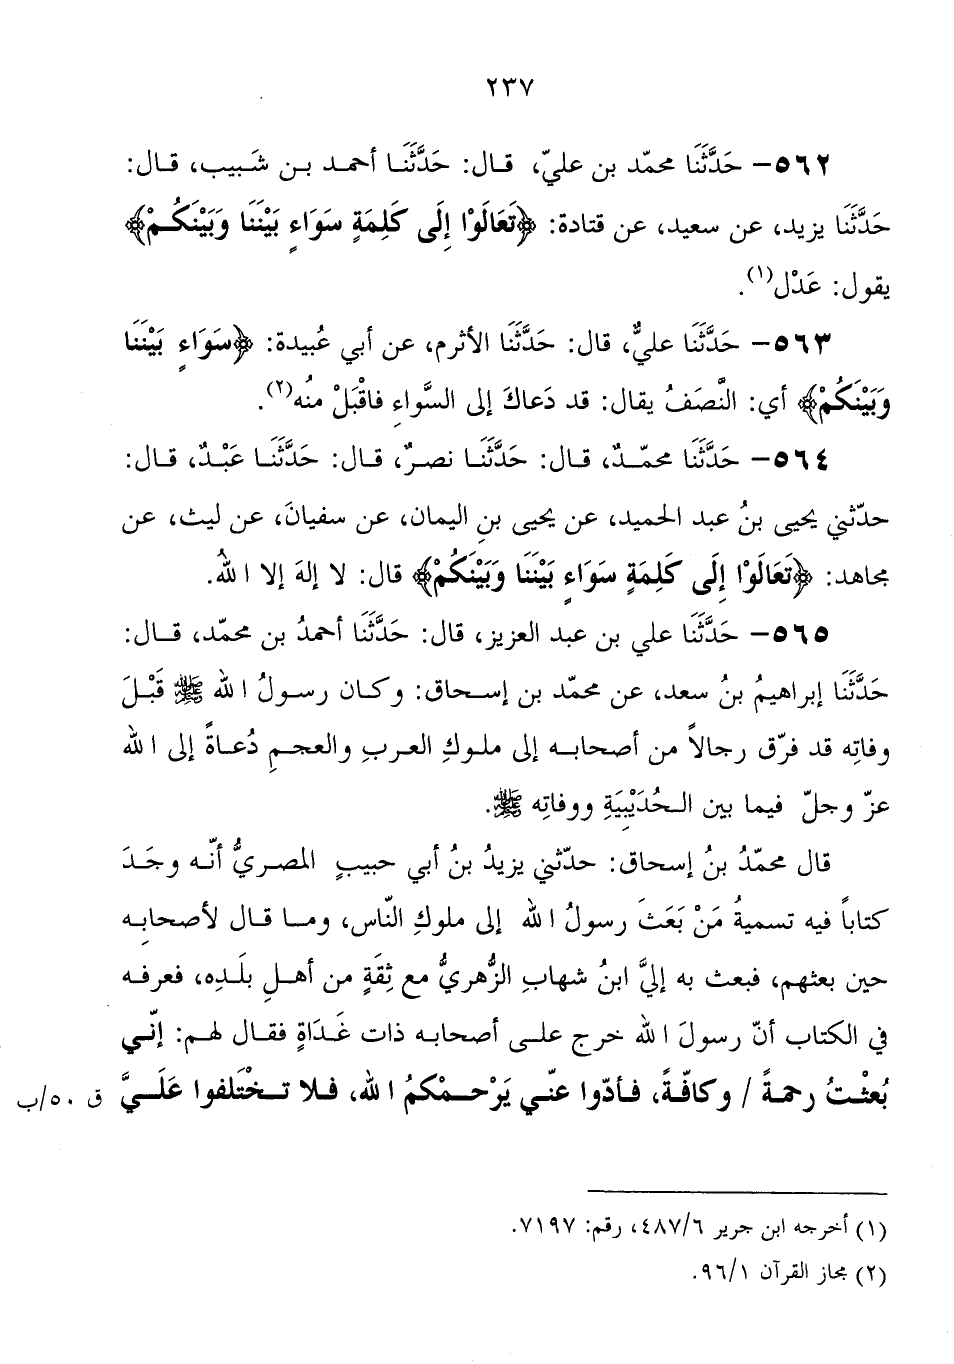 ٢٣٧
٥٦٢- حَدَّثَنَا محمّد بن عليّ، قـال: حَدَّثَنَـا أحمـد بـن شَـبيب، قـال:
حَدَّثَنَا يزيد، عن سعيد، عن قتادة: ﴿تَعَالَوْا إِلَى كَلِمَةٍ سَوَاءٍ بَيْنَنَا وَبَيْنَكُـمْ﴾
يقول: عَدْل(١).
٥٦٣- حَدَّثَنَا عليٌّ، قال: حَدَّثَنَا الأثرم، عن أبي عُبيدة: ﴿سَوَاءٍ بَيْنَنَا
وَبَيْنَكُمْ﴾ أي: النَّصَفُ يقال: قد دَعاكَ إلى السَّواءِ فاقْبَلْ منُه(٢).
٥٦٤- حَدَّثَنَا محمّـدٌ، قـال: حَدَّثَنَـا نصـرٌ، قـال: حَدَّثَنَـا عَبْـدٌ، قـال:
حدّثني يحيى بنُ عبد الحميد، عن يحيى بنِ اليمان، عن سفيانَ، عن ليث، عن
مجاهد: ﴿تَعَالَوْا إِلَى كَلِمَةٍ سَوَاءٍ بَيْنَنَا وَبَيْنَكُمْ﴾ قال: لا إلهَ إلا اللهُ.
٥٦٥- حَدَّثَنَا علي بن عبد العزيز، قال: حَدَّثَنَا أحمدُ بن محمّد، قـال:
حَدَّثَنَا إبراهيمُ بنُ سعد، عن محمّد بن إسـحاق: وكـان رسـولُ الله ﷺ قَبْـلَ
وفاتِه قد فرّق رجالاً من أصحابـه إلى ملـوكِ العـربِ والعجـمِ دُعـاةً إلى الله
عزّ وجلّ فيما بين الـحُدَيْبِيَةِ ووفاتِه ﷺ.
قال محمّدُ بنُ إسحاق: حدّثني يزيدُ بنُ أبي حبيبٍ المصـريُّ أنّـه وجَـدَ
كتاباً فيه تسميةُ مَنْ بَعَثَ رسولُ الله إلى ملوكِ النّاس، ومـا قـال لأصحابِـه
حين بعثهم، فبعث به إليَّ ابنُ شهابِ الزُّهريُّ مع ثِقَةٍ من أهـلِ بلَـدِه، فعرفـه
في الكتاب أنّ رسولَ الله خرج علـى أصحابـه ذات غَـدَاةٍ فقـال لهـم: إنّـي
بُعثْـتُ رحمةً / وكافّـةً، فـأدّوا عنّـي يَرْحـمْكمُ الله، فـلا تـخْتَلفوا عَلَـيَّ ق ٥٠/ب
(١) أخرجه ابن جرير ٤٨٧/٦، رقم: ٧١٩٧.
(٢) مجاز القرآن ٩٦/١.